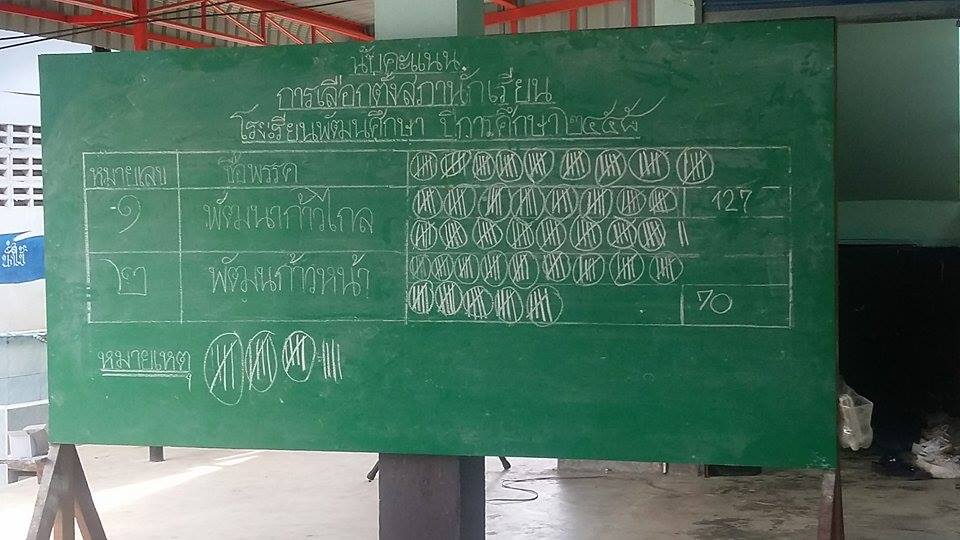 นับคะแนน
การเลือกตั้งสภานักเรียน
โรงเรียนพัฒนศึกษา ปีการศึกษา ๒๕๕๘
หมายเลข ชื่อพรรค
๑ พัฒนาก้าวไกล 127
๒ พัฒนก้าวหน้า 70
หมายเหตุ